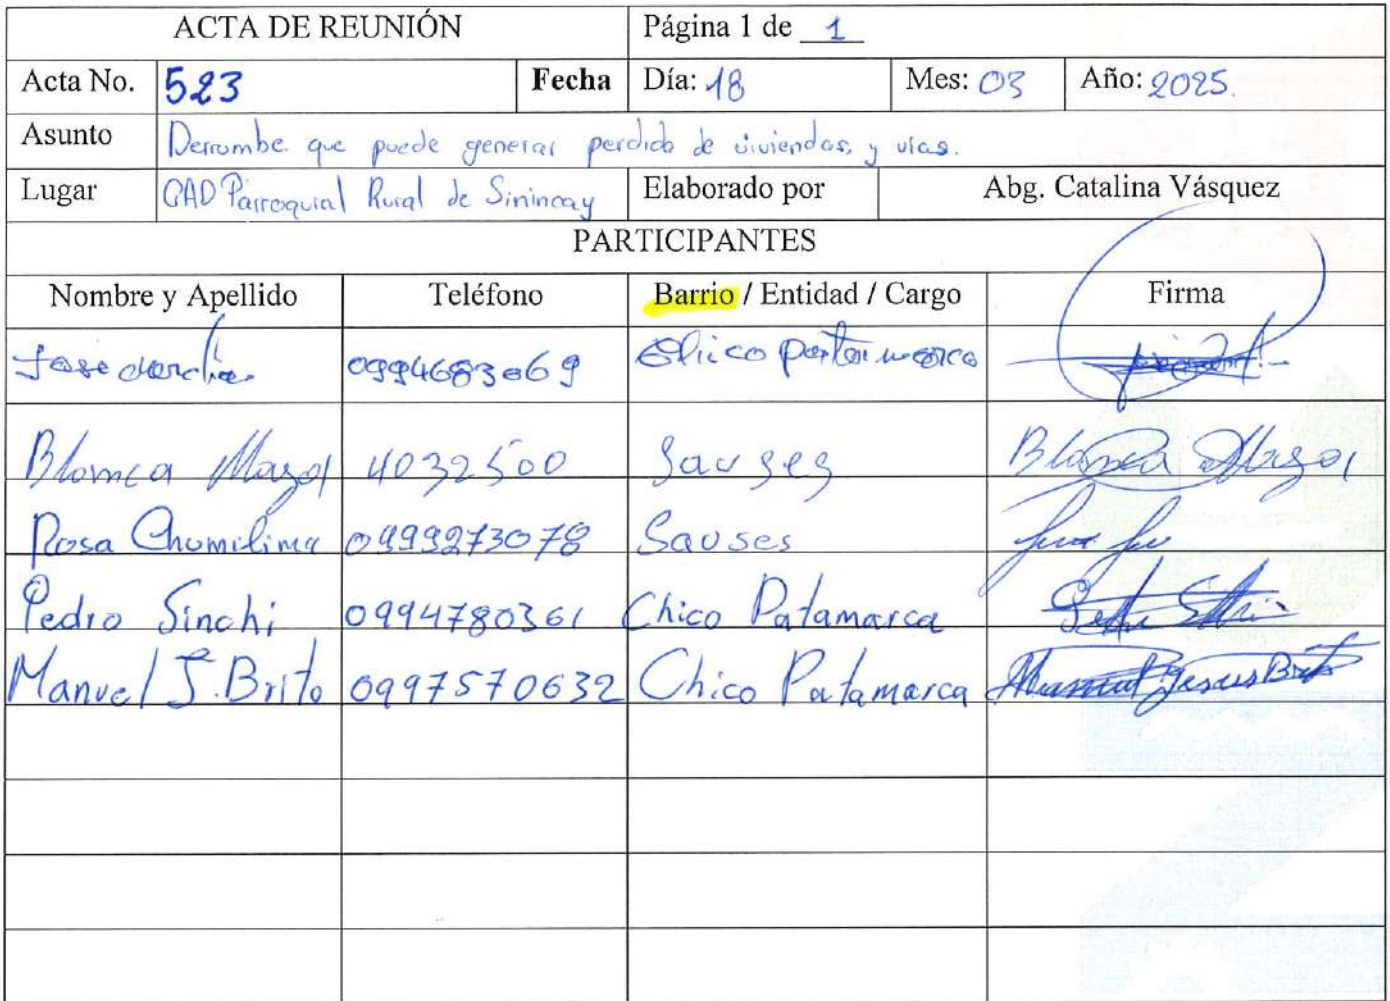 ACTA DE REUNIÓN Página 1 de 1
Acta No. 523 Fecha Día: 18 Mes: 03 Año: 2025.
Asunto Derrumbe que puede generar perdida de viviendas, y vías.
Lugar GAD Parroquial Rural de Sinincay Elaborado por Abg. Catalina Vásquez
PARTICIPANTES
Nombre y Apellido Teléfono Barrio / Entidad / Cargo Firma
Jose 0994683069 Chico patamarca
Blanca 4032500 Sauses Blanca
Rosa Chumilima 0999273078 Sauses
Pedro Sinchi 0994780361 Chico Patamarca
Manuel J. Brito 0997570632 Chico Patamarca Manuel Jesus Brito